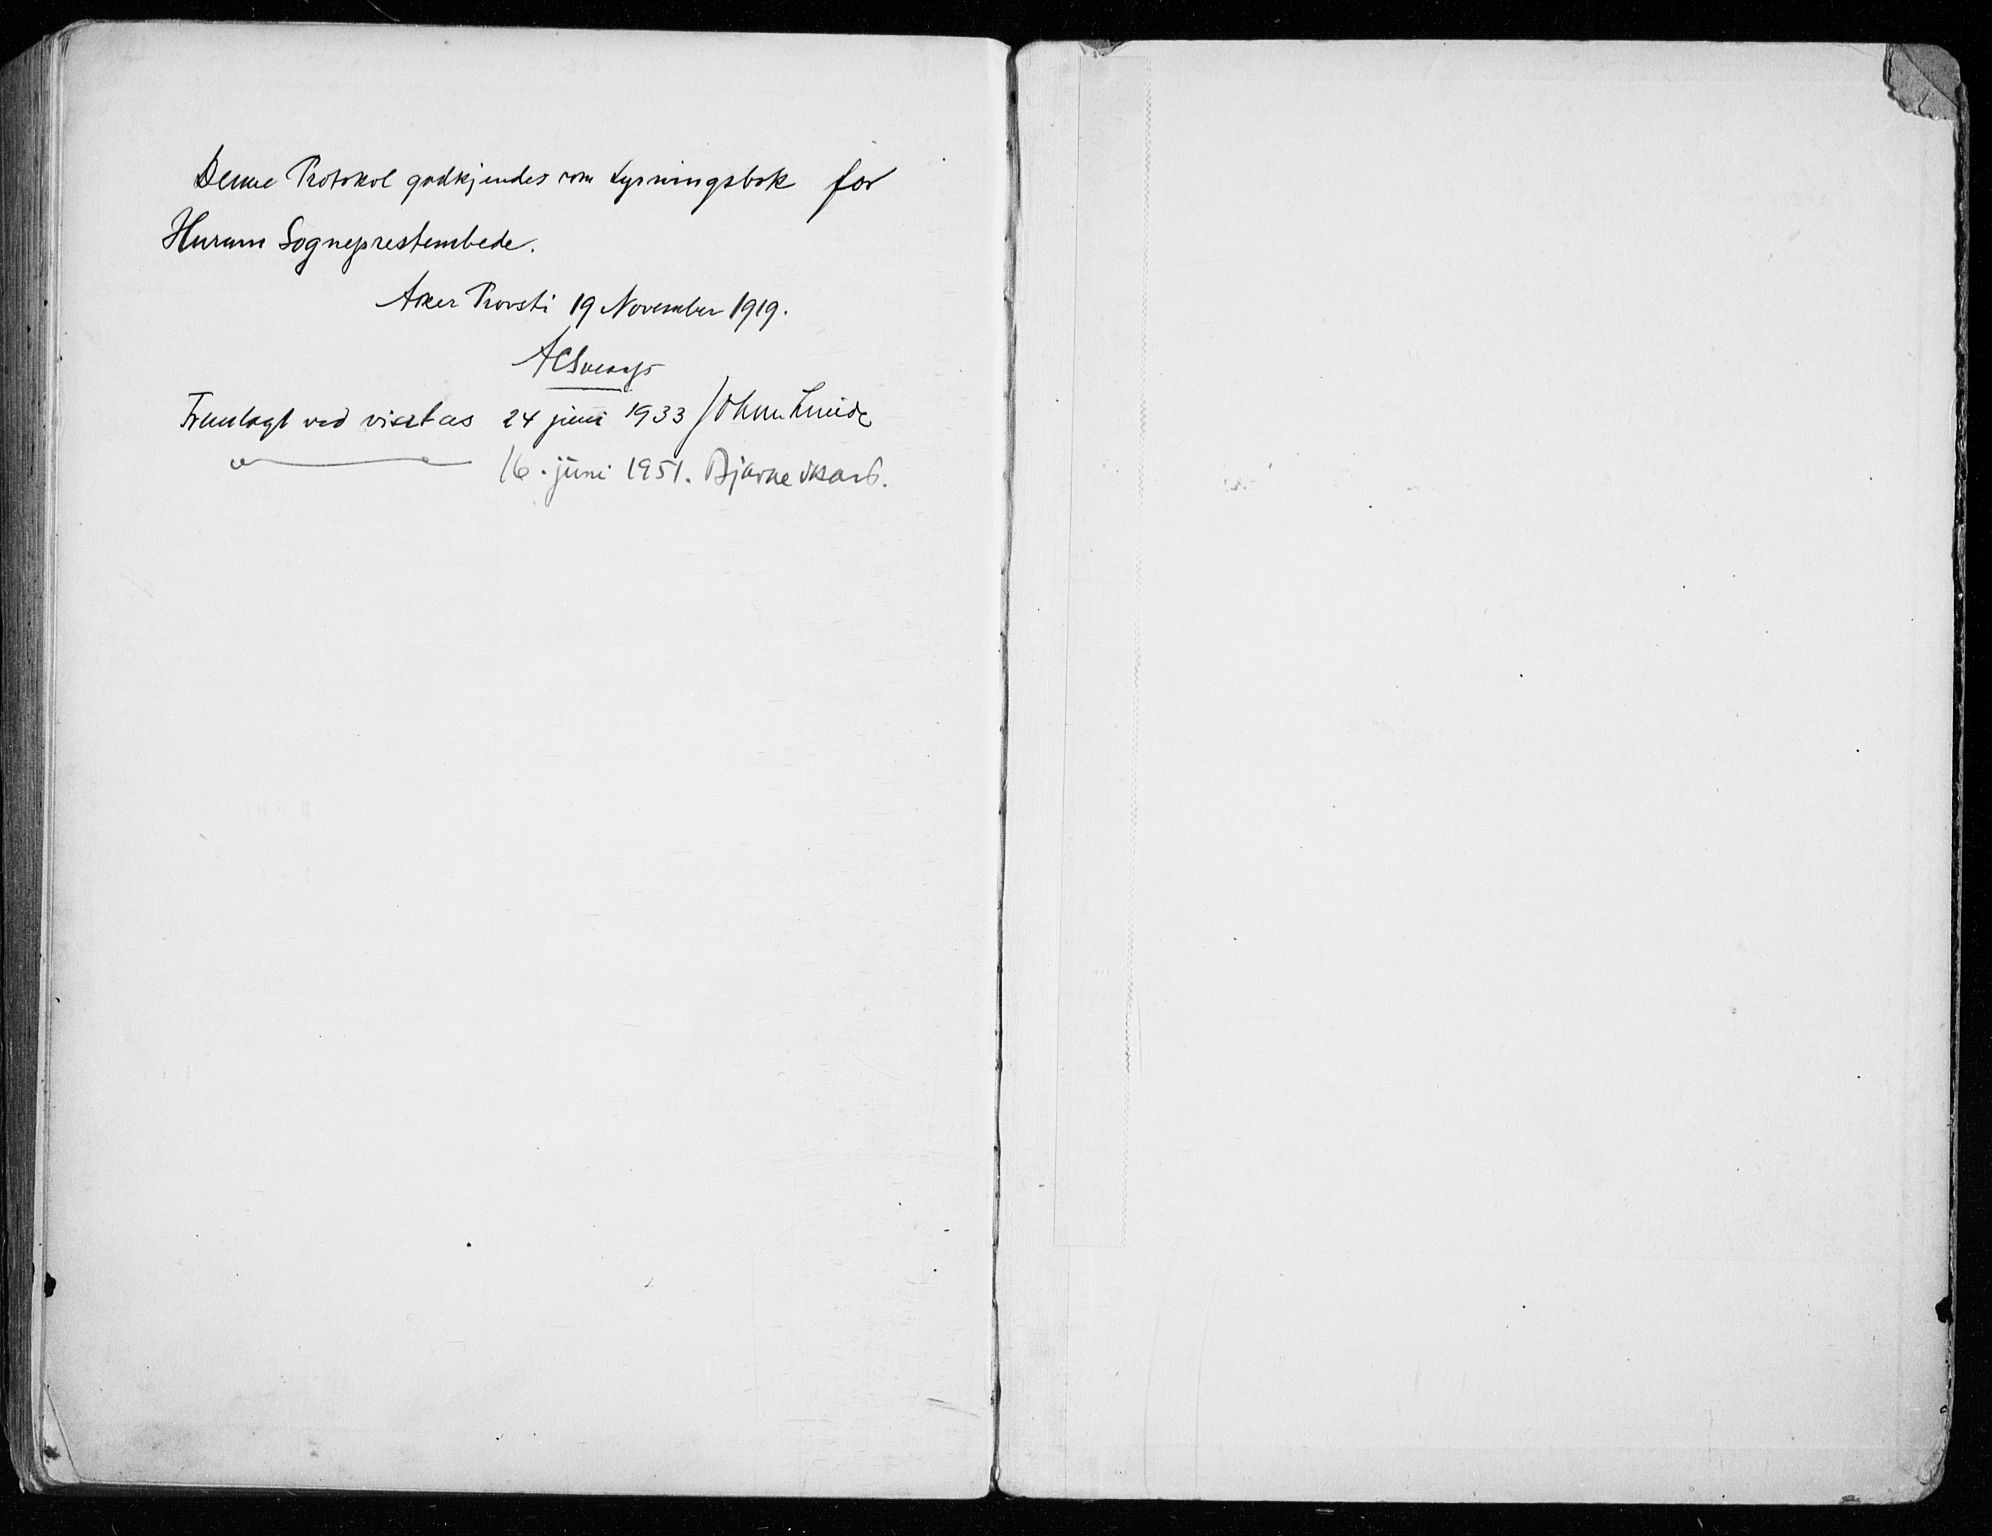 Denne Protokol godkjendes som Lysningsbok for
Hurum Sogneprestembede.
Aker Provsti 19 November 1919.
Fremlagt ved visitas 24 juni 1933 Johan Lunde
16. juni 1951. Bjarne Skard.